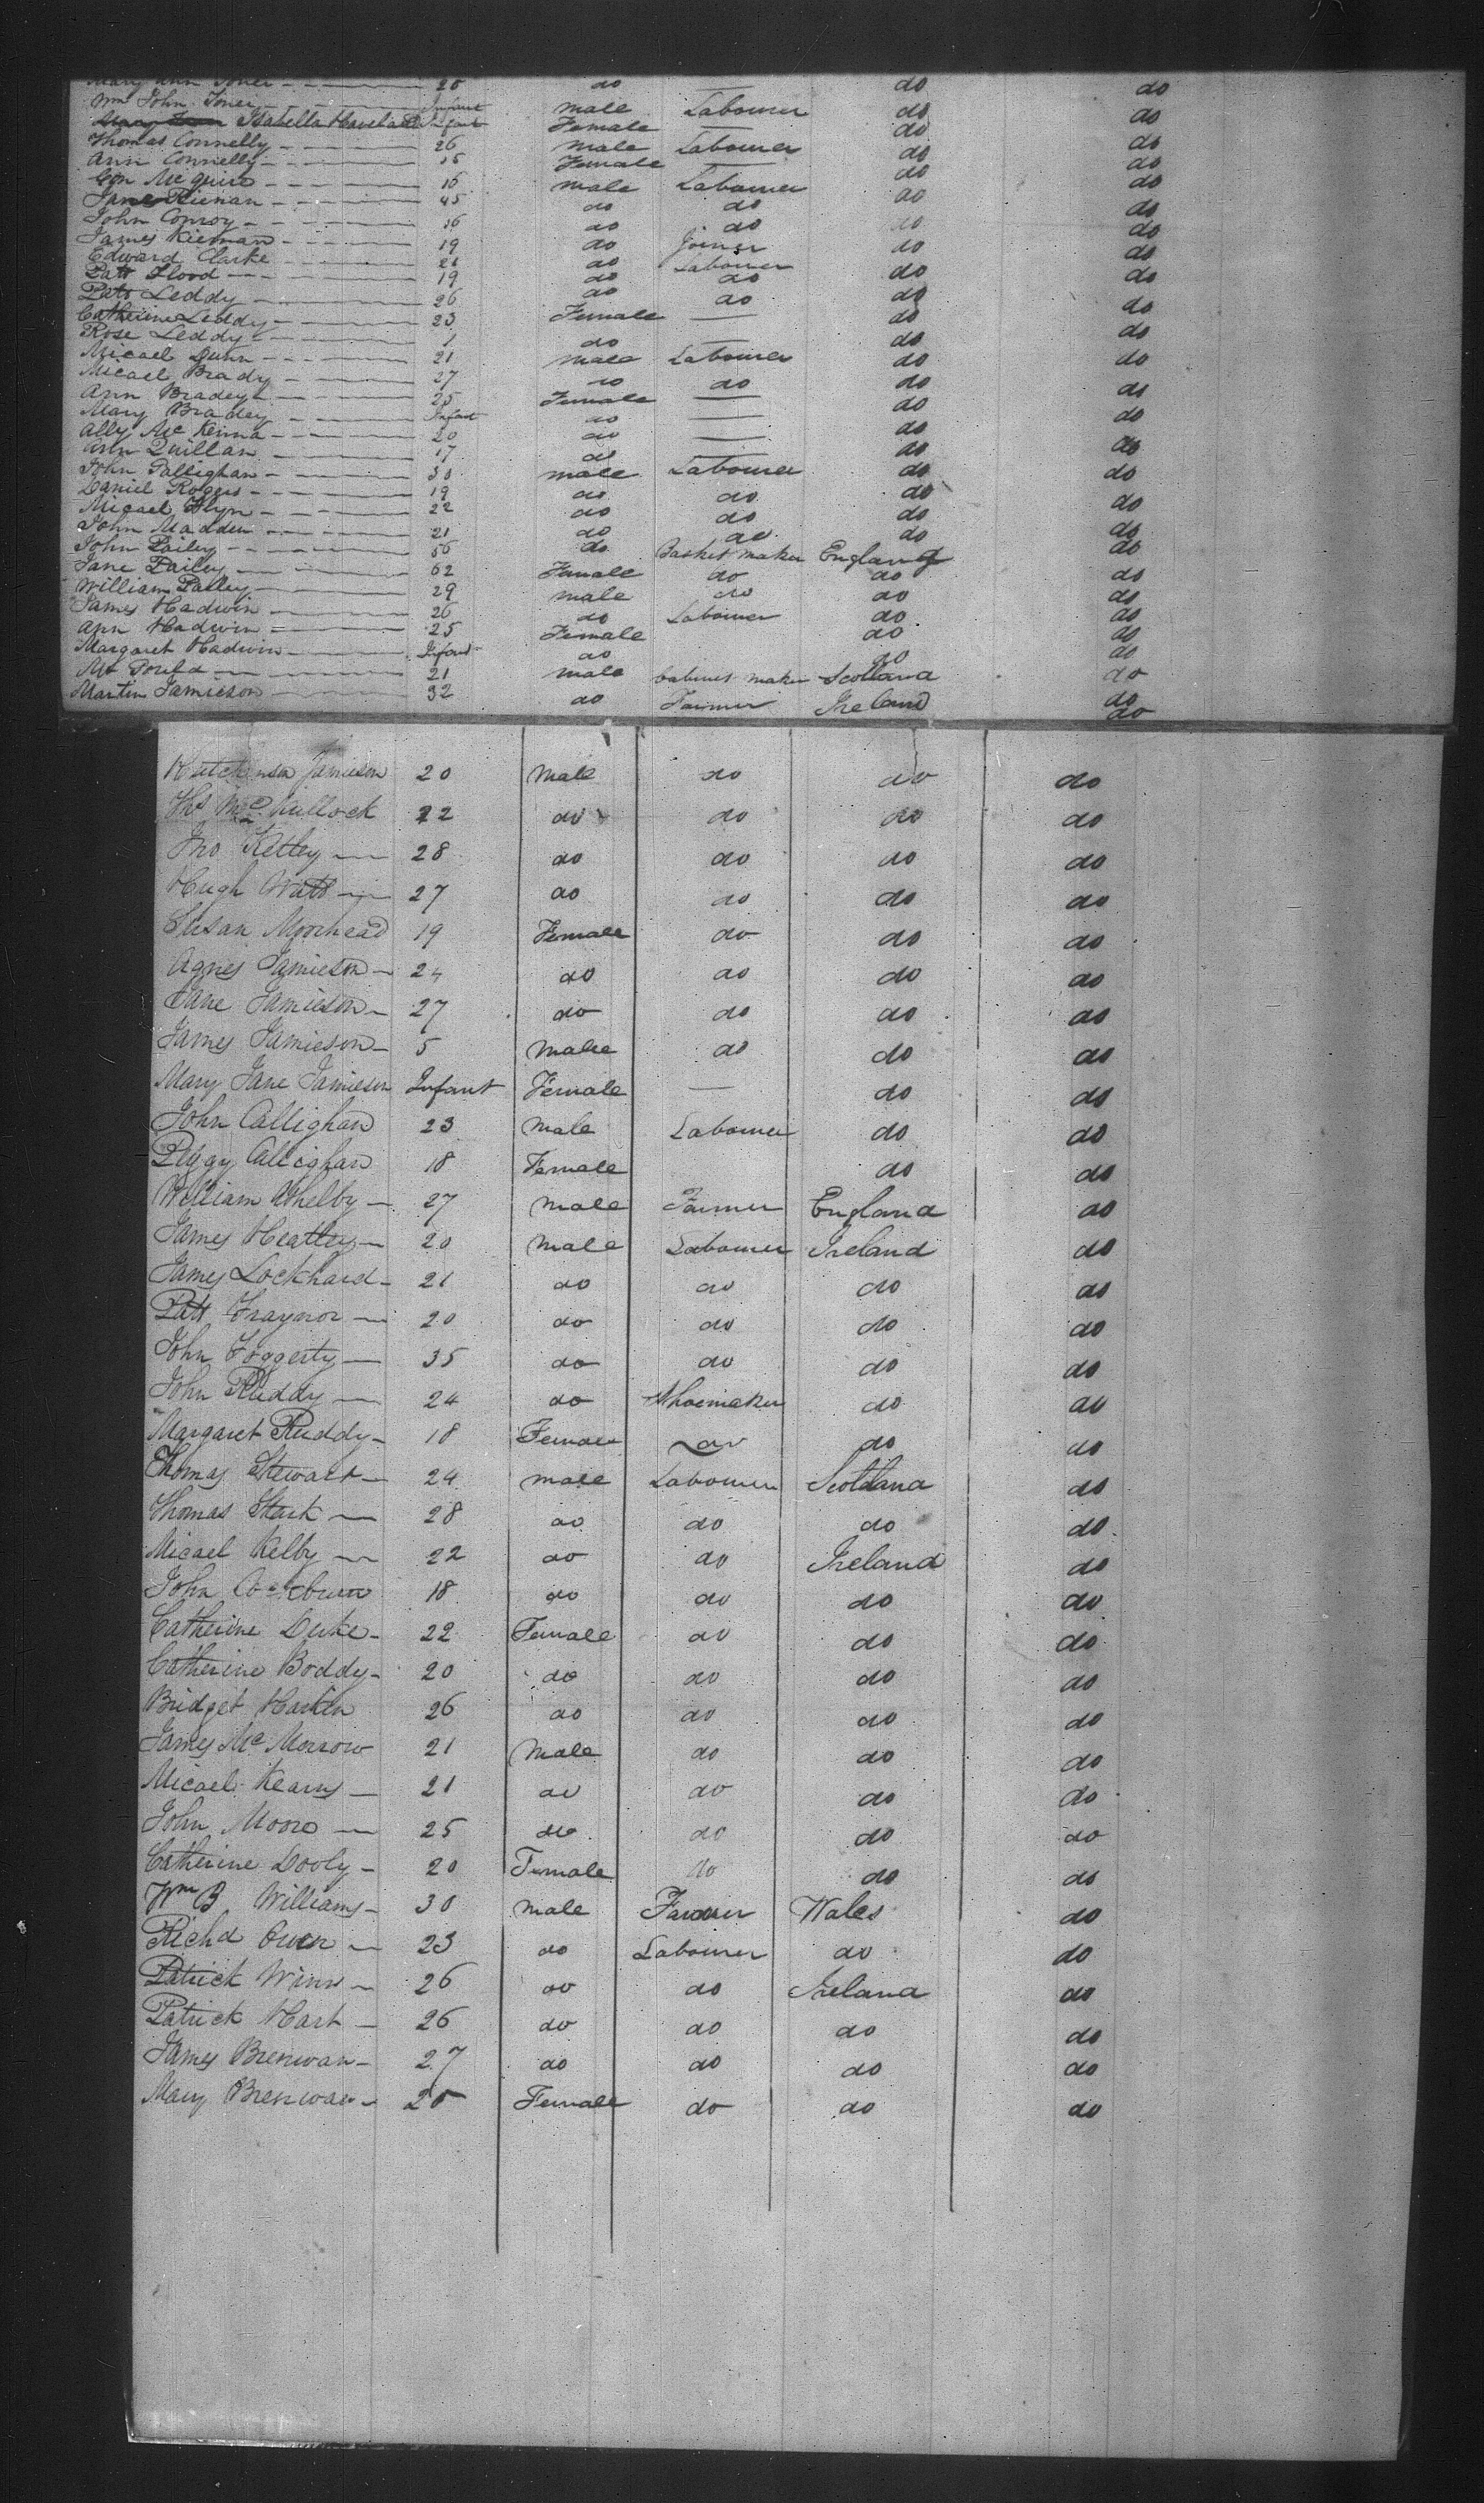 Mary Ann Toner 25 do do do
Wm John Toner Infant male Labourer do do
Isabella Infant Female do do
Thomas Connelly 26 male Labourer do do
Ann Connelly 15 Female do do
Con McGuire 16 male Labourer do do
45 do do do do
John Conroy 16 do do do do
James Kiernan 19 do Joiner do do
Edward Clarke 21 do Labourer do do
Patt Flood 19 do do do do
Patt Leddy 26 do do do do
Catherine Leddy 23 Female do do
Rose Leddy 1 do do do
Micael Dunn 21 male Labourer do do
Micael Brady 27 do do do do
Ann Bradey 25 Female do do
Mary Bradey Infant do do do
Ally McKenna 20 do do do
Ann Quillan 17 do do do
John Gallighan male Labourer do do
Daniel Rogers 19 do do do do
Micael Flyn 22 do do do do
John Madden 21 do do do do
John 56 do Basket maker England do
Jane 62 Female do do do
William 29 male do do do
James Hadwin 26 do Labourer do do
Ann Hadwin 25 Female do do
Margaret Hadwin Infant do do do
21 male Cabinet maker Scotland do
Martin Jamieson 32 do Farmer Ireland do
do
Hutchinson Jamieson 20 male do do do
Ths McCullock 22 do do do do
Jno Kelley 28 do do do do
Hugh Watt 27 do do do do
Susan Moorhead 19 Female do do do
Agnes Jamieson 24 do do do do
Jane Jamieson 27 do do do do
James Jamieson 5 male do do do
Mary Jane Jamieson Infant Female — do do
John Callighan 23 male Labourer do do
Peggy Callighan 18 Female do do
William Whelby 27 male Farmer England do
James Heatley 20 male Labourer Ireland do
James Lockhard 21 do do do do
Patt Traynor 20 do do do do
John Foggerty 35 do do do do
John Ruddy 24 do Shoemaker do do
Margaret Ruddy 18 Female do do do
Thomas Stewart 24 male Labourer Scotland do
Thomas Stark 28 do do do do
Micael Kelby 22 do do Ireland do
John Cockburn 18 do do do do
Catherine Duke 22 Female do do do
Catherine Boddy 20 do do do do
Bridget Harken 26 do do do do
James McMorrow 21 male do do do
Micael Kearns 21 do do do do
John Moore 25 do do do do
Catherine Dooly 20 Female do do do
Wm B Williams 30 male Farmer Wales do
Richd Owen 23 do Labourer do do
Patrick Winn 26 do do Ireland do
Patrick Hart 26 do do do do
James Brenwan 27 do do do do
Mary Brenwan 25 Female do do do